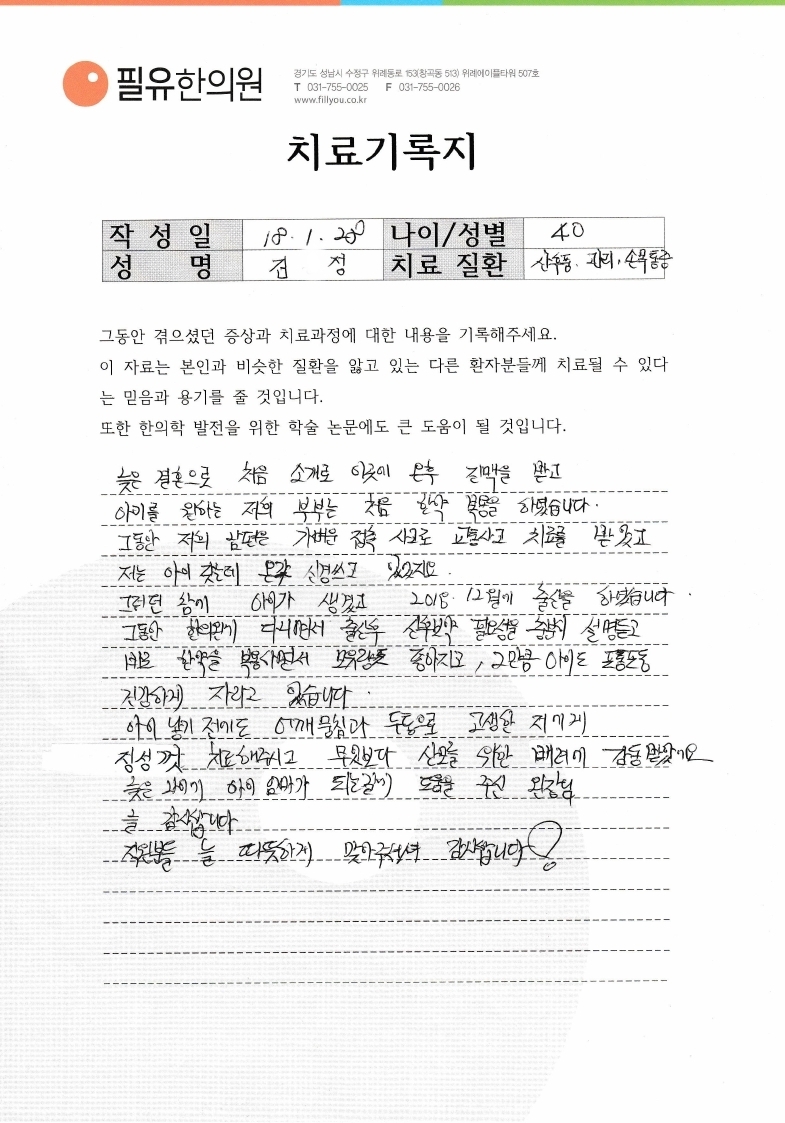 필유한의원
경기도 성남시 수정구 위례동로 153(창곡동 513) 위례에이플타워 507호
T 031-755-0025 F 031-755-0026
www.fillyou.co.kr
치료기록지
작성일 18. 1. 나이/성별 40
성명 정 치료 질환 산후풍, 관리, 손목통증
그동안 겪으셨던 증상과 치료과정에 대한 내용을 기록해주세요.
이 자료는 본인과 비슷한 질환을 앓고 있는 다른 환자분들께 치료될 수 있다
는 믿음과 용기를 줄 것입니다.
또한 한의학 발전을 위한 학술 논문에도 큰 도움이 될 것입니다.
늦은 결혼으로 처음 소개로 이곳에 온후 진맥을 받고
아이를 원하는 저희 부부는 처음 한약 복용을 하였습니다.
그동안 저희 남편은 가벼운 접촉 사고로 교통사고 치료를 받았고
저는 아이 갖는데 신경쓰고 있었지요.
그러던 참에 아이가 생겼고 2018. 12월에 출산을 하였습니다.
그동안 한의원에 다니면서 출산후 산후보약 필요성을 충분히 설명듣고
바로 한약을 복용하면서 모유량도 좋아지고, 그만큼 아이도 포동포동
건강하게 자라고 있습니다.
아이 낳기 전에도 어깨 뭉침과 두통으로 고생한 저에게
정성껏 치료해주시고 무엇보다 산모를 위한 배려에 감동받았네요
늦은 나이에 아이 엄마가 되는길에 도움을 주신 원장님
늘 감사합니다
직원분들 늘 따뜻하게 맞아주셔서 감사합니다!